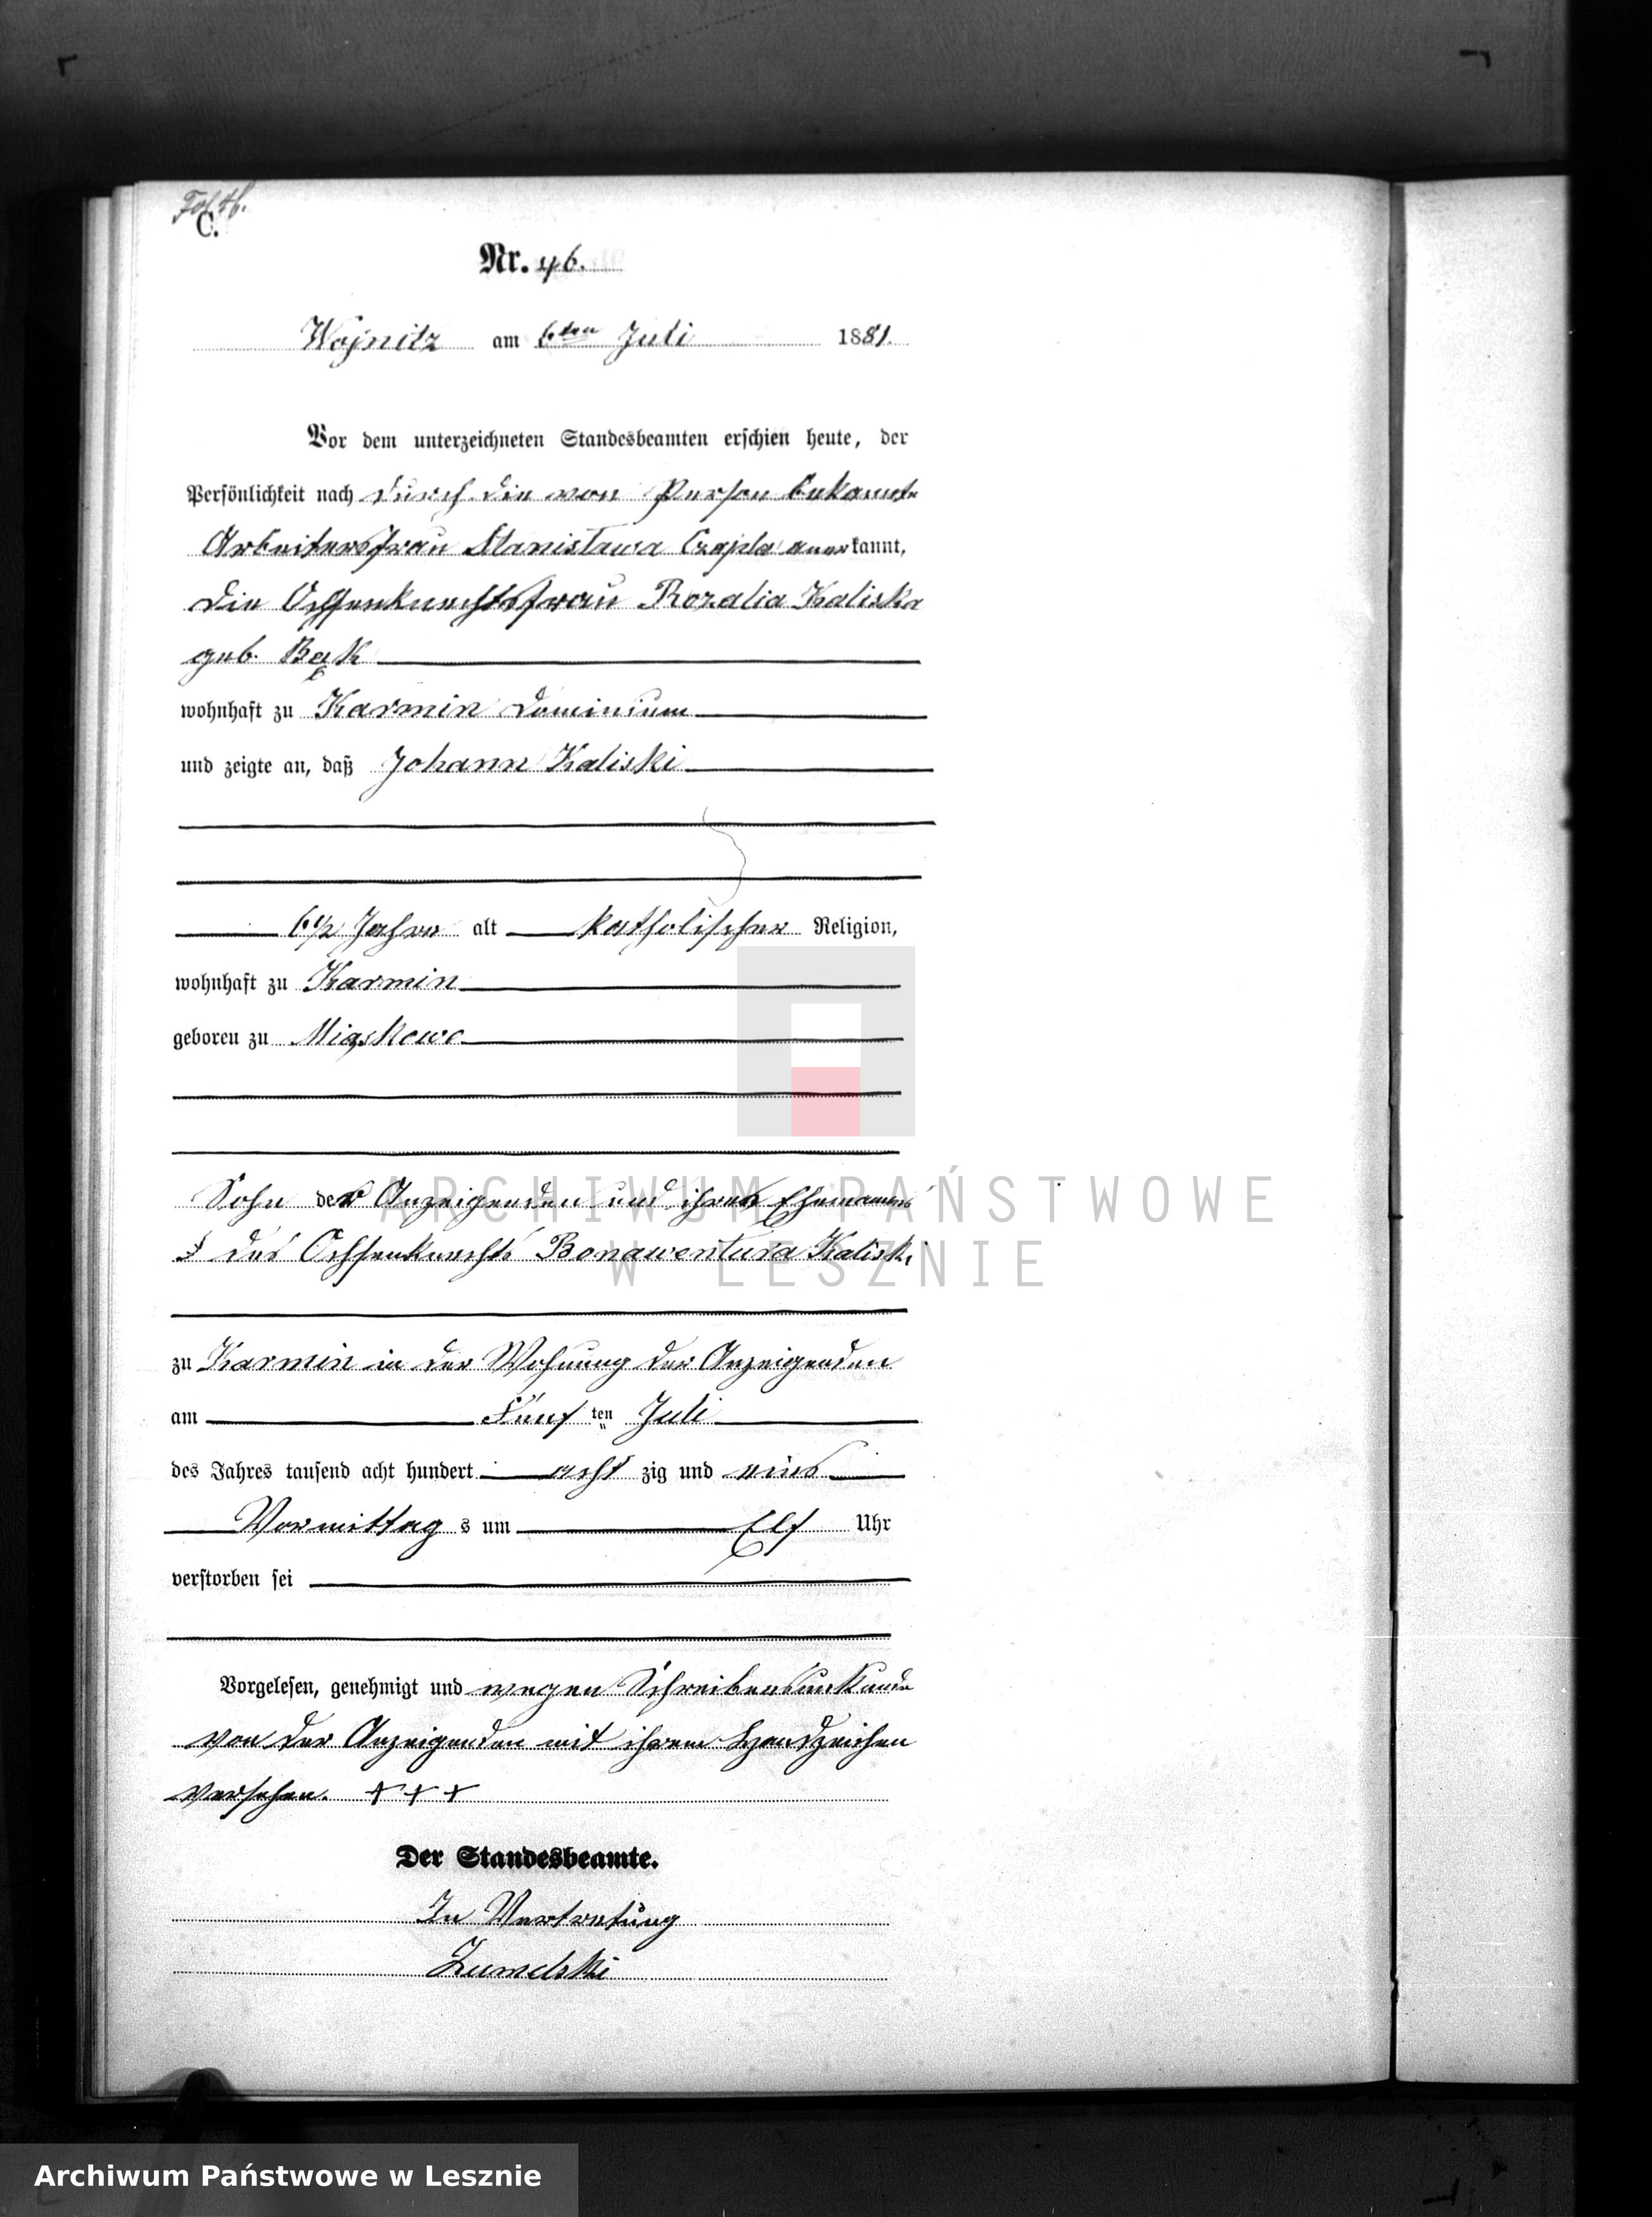 Fol 46.
C.
Nr. 46.
Wojnitz am 6ten Juli 1881.
Vor dem unterzeichneten Standesbeamten erschien heute, der
Persönlichkeit nach durch die von Person bekannte
Arbeitersfrau Stanisława Czapla anerkannt,
die Ochsenknechtsfrau Rozalia Kaliska
geb. Bąk
wohnhaft zu Karmin Dominium
und zeigte an, daß Johann Kaliski
6 1/2 Jahre alt katholischer Religion,
wohnhaft zu Karmin
geboren zu Miąskowo
Sohn der Anzeigenden und ihres Ehemannes
des Ochsenknechts Bonawentura Kaliski
zu Karmin in der Wohnung der Anzeigenden
am Fünf ten Juli
des Jahres tausend acht hundert acht zig und eins
Vormittag s um Elf Uhr
verstorben sei
Vorgelesen, genehmigt und wegen Schreibensunkunde
von der Anzeigenden mit ihrem Handzeichen
versehen. + + +
Der Standesbeamte.
In Vertretung
ARCHIWUM PAŃSTWOWE
W LESZNIE
Archiwum Państwowe w Lesznie